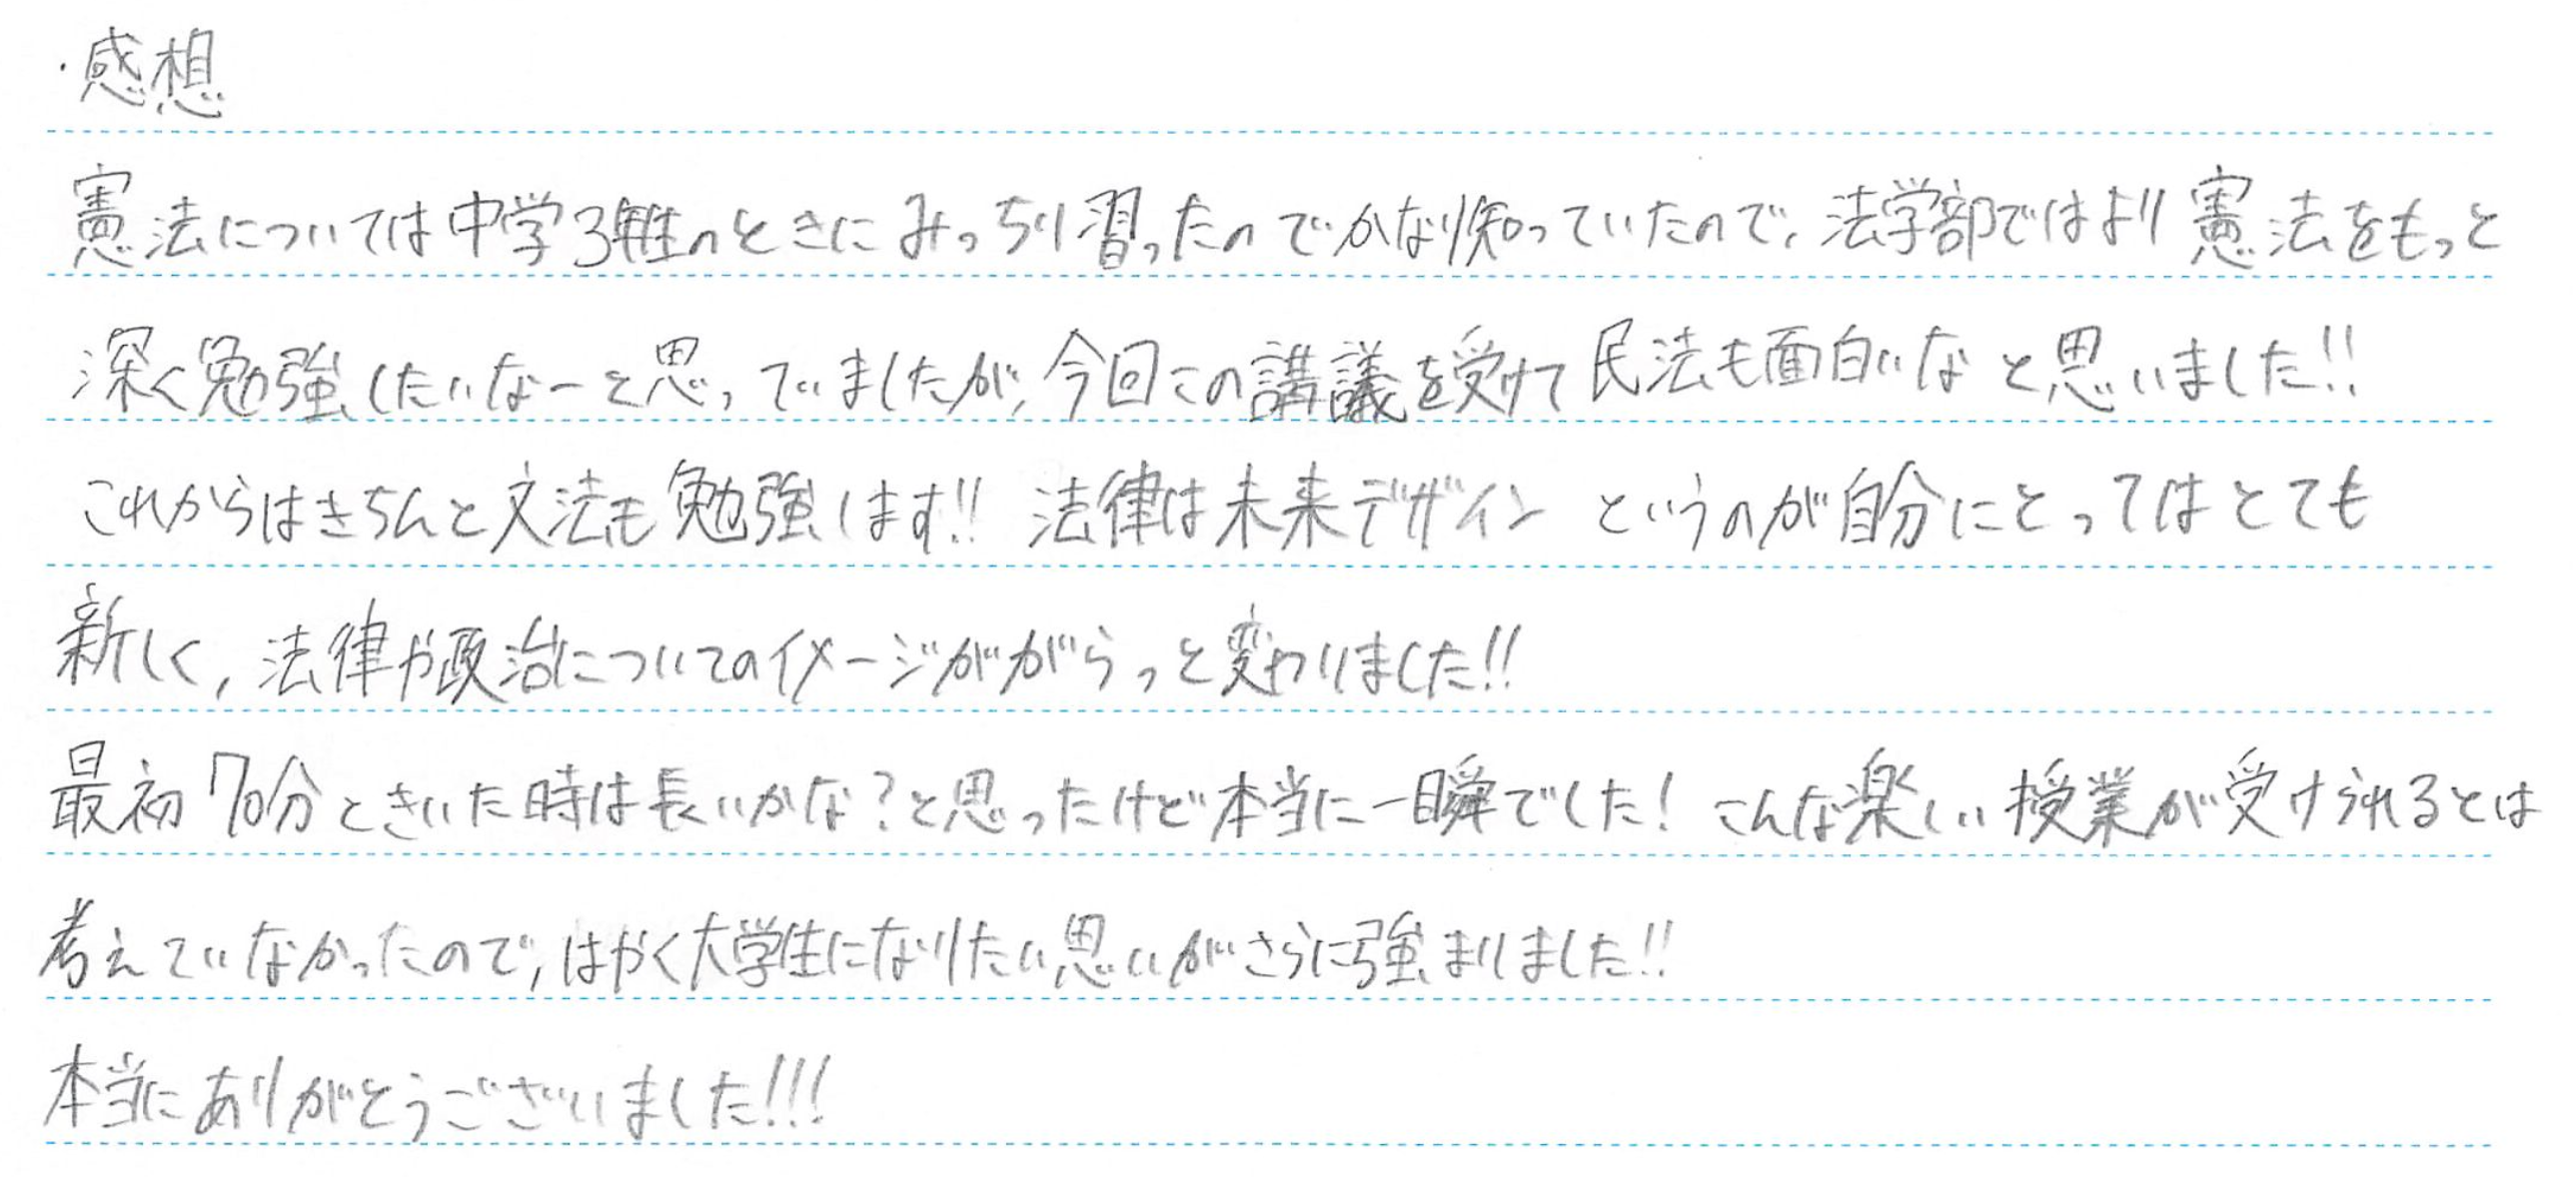 ・感想
憲法については中学3年生のときにみっちり習ったのでかなり知っていたので、法学部ではより憲法をもっと
深く勉強したいなーと思っていましたが、今回この講義を受けて民法も面白いなと思いました!!
これからはきちんと文法も勉強します!! 法律は未来デザインというのが自分にとってはとても
新しく,法律や政治についてのイメージががらっと変わりました!!
最初70分ときいた時は長いかな?と思ったけど本当に一瞬でした! こんな楽しい授業が受けられるとは
考えていなかったので,はやく大学生になりたい思いがさらに強まりました!!
本当にありがとうございました!!!